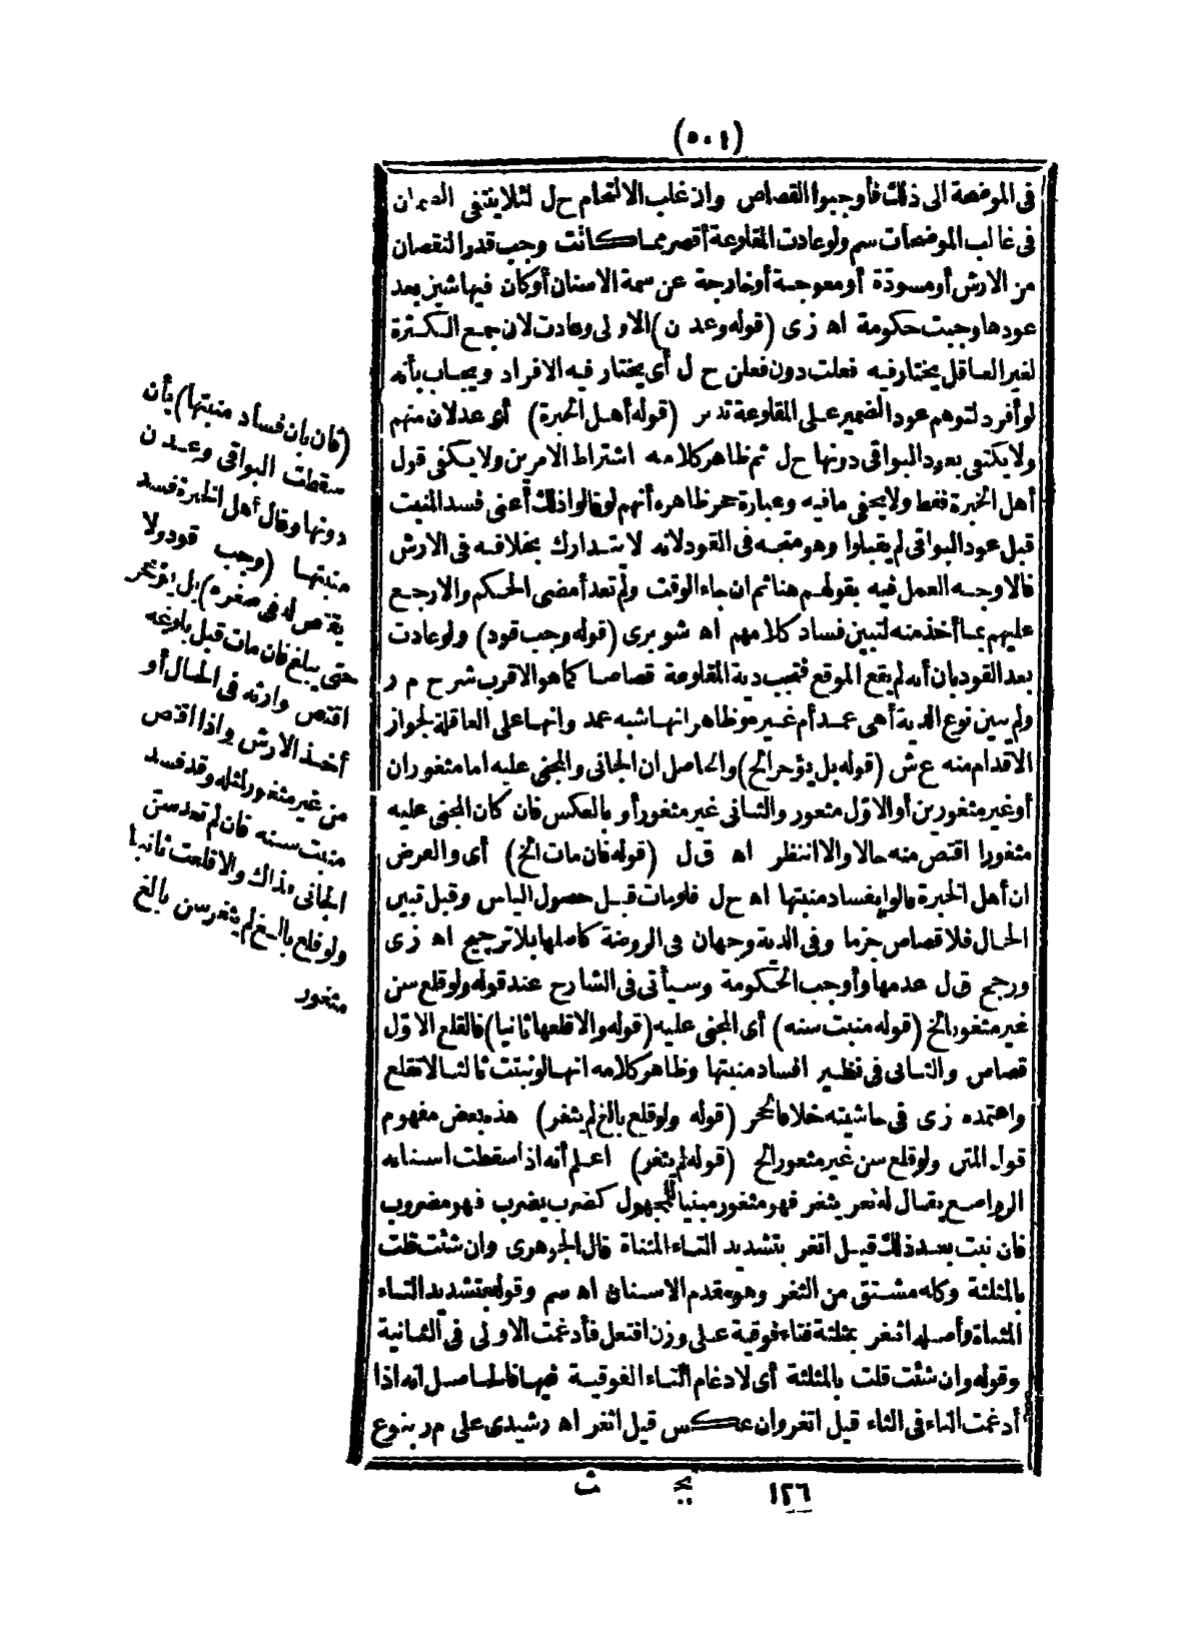 (٥٠١)
فى الموضحة الى ذلك فأوجبوا القصاص وان غلب الالتحام ح ل لئلا ينتفى القصاص
فى غالب الموضحات سم ولو عادت المقلوعة أقصر مما كانت وجب قدر النقصان
من الارش أو مسودّة أو معوجة أو خارجة عن سمة الاسنان أو كان فيها شين بعد
عودها وجبت حكومة اه زى (قوله وعدن) الاولى وعادت لان جمع الكثرة
لغير العاقل يختار فيه فعلت دون فعلن ح ل أى يختار فيه الافراد ويجاب بأنه
لو أفرد لتوهم عود الضمير على المقلوعة تدبر (قوله أهل الخبرة) أى عدلان منهم
ولا يكتفى بعود البواقى دونها ح ل ثم ظاهر كلامه اشتراط الامرين ولا يكفى قول
أهل الخبرة فقط ولا يخفى ما فيه وعبارة حجر ظاهره أنهم لو قالوا ذلك أعنى فسد المنبت
قبل عود البواقى لم يقبلوا وهو متجه فى القود لانه لا يتدارك بخلافه فى الارش
فالاوجه العمل فيه بقولهم هنا ثم ان جاء الوقت ولم تعد أمضى الحكم والا رجع
عليهم بما أخذ منه لتبين فساد كلامهم اه شوبرى (قوله وجب قود) ولو عادت
بعد القود بان أنه لم يقع الموقع فتجب دية المقلوعة قصاصا كما هو الاقرب شرح م ر
ولم يبين نوع الدية أهى عمد أم غيره وظاهر انها شبه عمد وانها على العاقلة لجواز
الاقدام منه ع ش (قوله بل يؤخر الخ) والحاصل ان الجانى والمجنى عليه اما مثغوران
أو غير مثغورين أو الاوّل مثغور والثانى غير مثغور أو بالعكس فان كان المجنى عليه
مثغورا اقتص منه حالا والا انتظر اه ق ل (قوله فان مات الخ) أى والفرض
ان أهل الخبرة قالوا بفساد منبتها اه ح ل فلو مات قبل حصول الياس وقبل تبين
الحال فلا قصاص جزما وفى الدية وجهان فى الروضة كاصلها بلا ترجيح اه زى
ورجح ق ل عدمها وأوجب الحكومة وسيأتى فى الشارح عند قوله ولو قلع سن
غير مثغور الخ (قوله منبت سنه) أى المجنى عليه (قوله والا قلعها ثانيا) فالقلع الاوّل
قصاص والثانى فى نظير افساد منبتها وظاهر كلامه انها لو نبتت ثالثا لا تقلع
واعتمده زى فى حاشيته خلافا لحجر (قوله ولو قلع بالغ لم يثغر) هذه بعض مفهوم
قول المتن ولو قلع سن غير مثغور الخ (قوله لم يثغر) اعلم أنه اذا سقطت اسنانه
الرواضع يقال له ثغر يثغر فهو مثغور مبنيا للمجهول كضرب يضرب فهو مضروب
فان نبت بعد ذلك قيل اتغر بتشديد التاء المثناة قال الجوهرى وان شئت قلت
بالمثلثة وكله مشتق من الثغر وهو مقدم الاسنان اه سم وقوله بتشديد التاء
المثناة وأصله اثتغر بمثلثة فتاء فوقية على وزن افتعل فأدغمت الاولى فى الثانية
وقوله وان شئت قلت بالمثلثة أى لادغام التاء الفوقية فيها فالحاصل انه اذا
أدغمت الثاء فى التاء قيل اتغر وان عكس قيل اثغر اه رشيدى على م ر بنوع
(فان بان فساد منبتها) بأن
سقطت البواقى وعدن
دونها وقال أهل الخبرة فسد
منبتها (وجب قود ولا
يقتص له فى صغره) بل يؤخر
حتى يبلغ فان مات قبل بلوغه
اقتص وارثه فى الحال أو
أخذ الارش واذا اقتص
من غير مثغور لمثله وقد فسد
منبت سنه فان لم تعد سن
الجانى فذاك والا قلعت ثانيا
ولو قلع بالغ لم يثغر سن بالغ
مثغور
١٢٦ بج ث